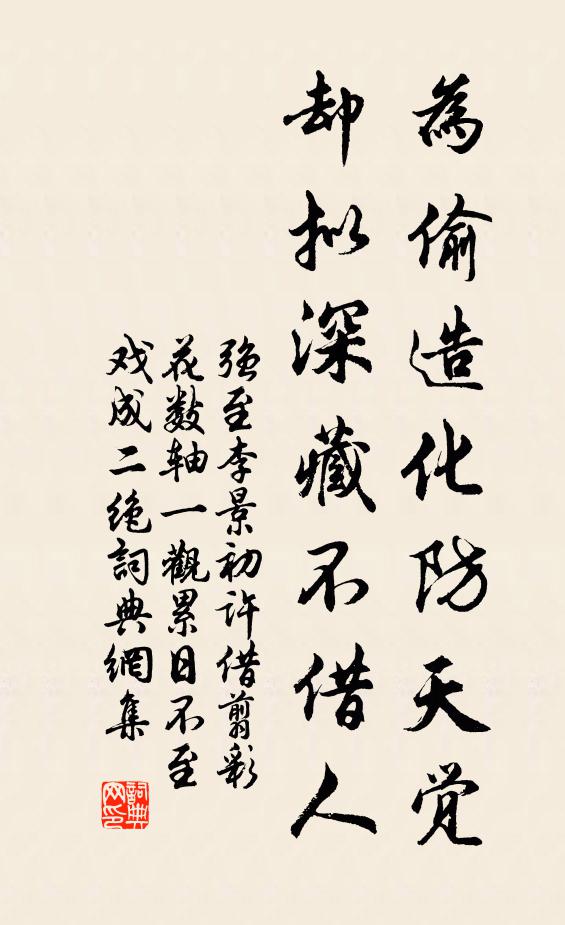 為偷造化防天觉
却拟深藏不借人
強至李景初许借剪彩
花数轴一觀累日不至
戏成二绝詞典網集
詞典网印